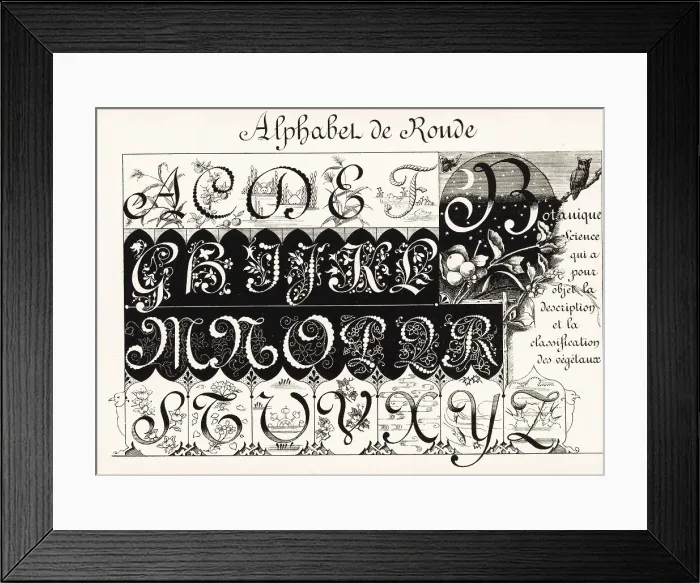 Alphabet de Ronde
A C D E F
B
otanique
Science
qui a
pour
objet la
description
et la
classification
des végétaux
G H I J K L
M N O P Q R
S T U V X Y Z